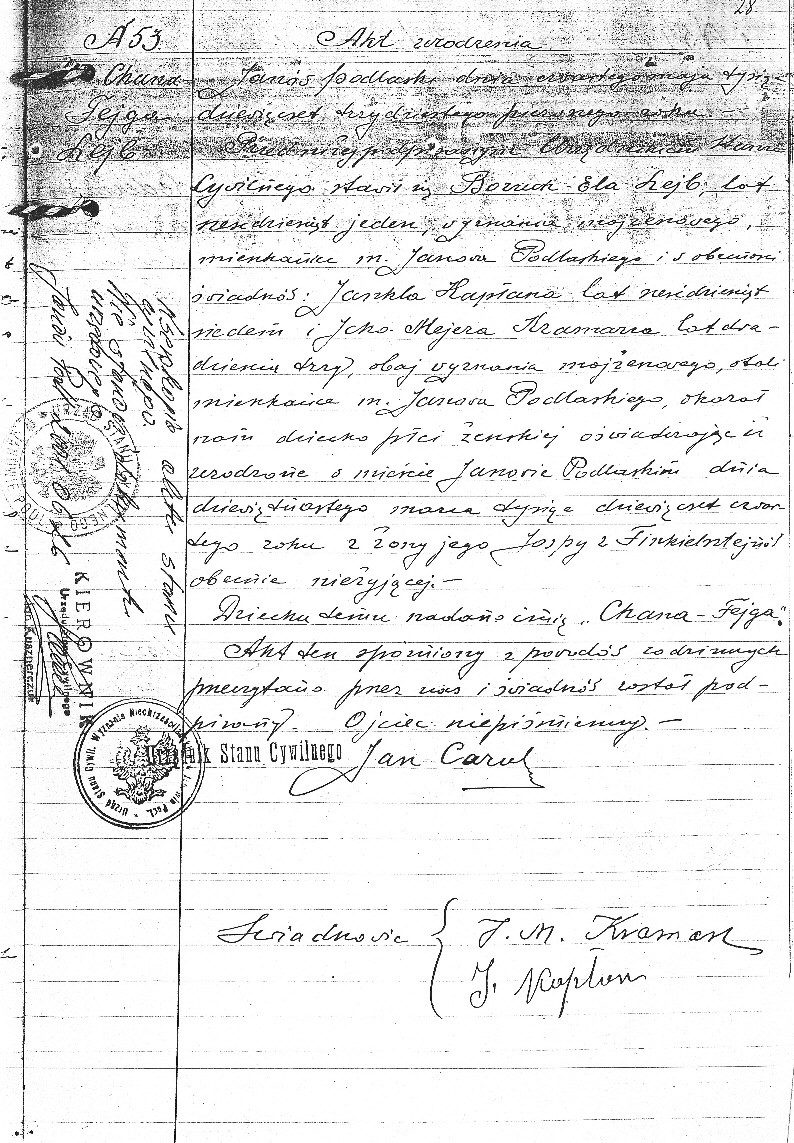 28
№ 53
Akt urodzenia
Chana
Fejga
Lejb
Janów Podlaski dnia czwartego maja tysiąc
dziewięćset trzydziestego pierwszego roku. —
Przed niżej podpisanym Urzędnikiem Stanu
Cywilnego stawił się Boruch-Ela Lejb, lat
sześćdziesiąt jeden, wyznania mojżeszowego,
mieszkaniec m. Janowa Podlaskiego i w obecności
świadków: Jankla Kapłana lat sześćdziesiąt
siedem i Icko Mejera Kramarza lat dwa-
dzieścia trzy, obaj wyznania mojżeszowego, stali
mieszkańcy m. Janowa Podlaskiego, okazał
nam dziecko płci żeńskiej oświadczając iż
urodzone w mieście Janowie Podlaskim dnia
dziewiętnastego marca tysiąc dziewięćset czwar
tego roku z żony jego Jospy z Finkielsztejnów
obecnie nieżyjącej. —
Dziecku temu nadano imię „Chana-Fejga".
Akt ten spóźniony z powodów rodzinnych
przeczytano przez nas i świadków został pod-
pisany. Ojciec niepiśmienny. —
Urzędnik Stanu Cywilnego
Jan Carul
Świadkowie
J. M. Kramarz
J. Kapłan
aktu stanu
nie stanowi dokumentu
Janów Podl.
KIEROWNIK
Urzędu Stanu Cywilnego
Urząd Stanu Cywil. Wyznania Niechrześc.